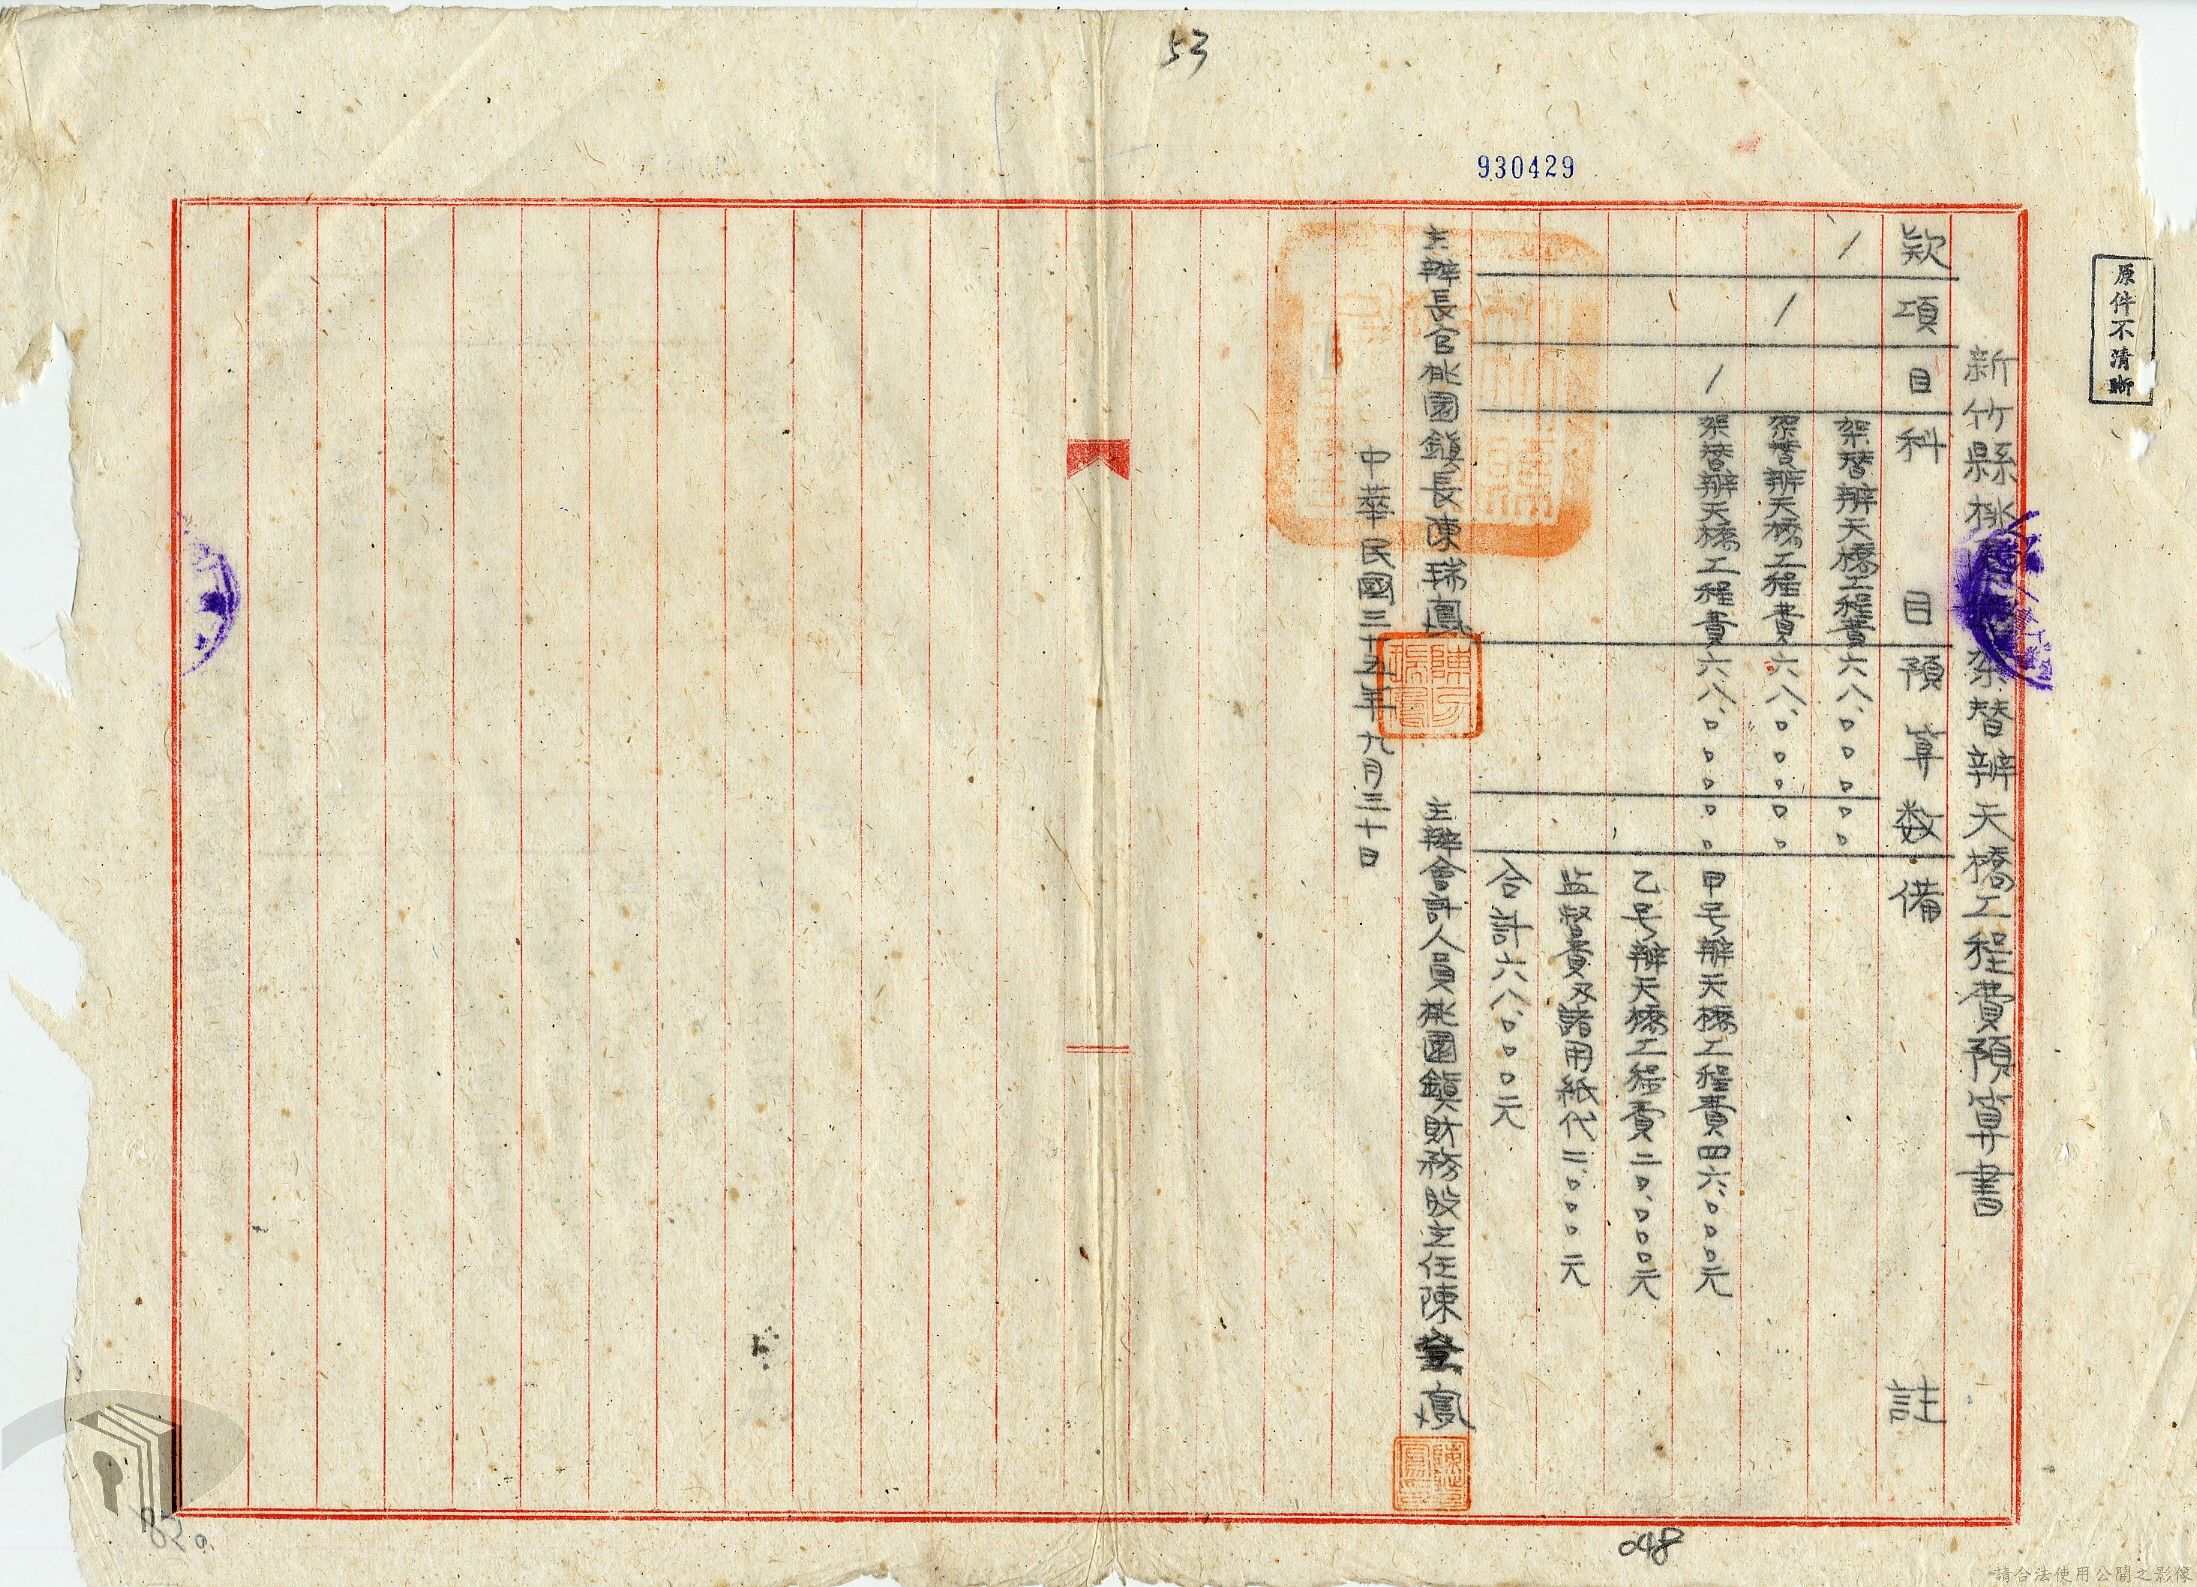 53
930429
原件不清晰
新竹縣桃園鎮架替辨天橋工程費預算書
款 項 目 科目 預算数 備註
1 架替辨天橋工程費 六八、〇〇〇〇〇
1 架替辨天橋工程費 六八、〇〇〇〇〇
1 架替辨天橋工程費 六八、〇〇〇〇〇 甲号辨天橋工程費四六、〇〇〇元
乙号辨天橋工程費二〇、〇〇〇元
監督費及諸用紙代二、〇〇〇元
合計六八、〇〇〇元
主辦長官桃園鎮長陳瑞鳳 主辦會計人員桃園鎮財務股主任陳 鳳
中華民國三十五年九月三十日
048
請合法使用公開之影像